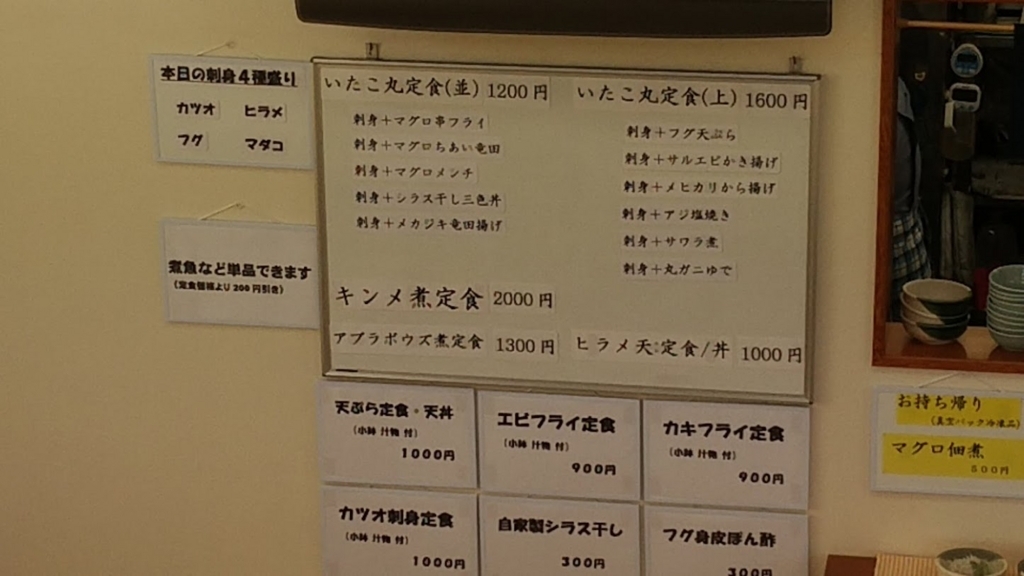 本日の刺身4種盛り
カツオ ヒラメ
フグ マダコ
煮魚など単品できます
(定食価格より200円引き)
いたこ丸定食(並) 1200円
刺身+マグロ串フライ
刺身+マグロちあい竜田
刺身+マグロメンチ
刺身+シラス干し三色丼
刺身+メカジキ竜田揚げ
いたこ丸定食(上) 1600円
刺身+フグ天ぷら
刺身+サルエビかき揚げ
刺身+メヒカリから揚げ
刺身+アジ塩焼き
刺身+サワラ煮
刺身+丸ガニゆで
キンメ煮定食 2000円
アブラボウズ煮定食 1300円
ヒラメ天:定食/丼 1000円
天ぷら定食・天丼
(小鉢 汁物 付)
1000円
エビフライ定食
(小鉢 汁物 付)
900円
カキフライ定食
(小鉢 汁物 付)
900円
カツオ刺身定食
(小鉢 汁物 付)
1000円
自家製シラス干し
300円
フグ身皮ぽん酢
300円
お持ち帰り
(真空パック冷凍品)
マグロ佃煮
500円